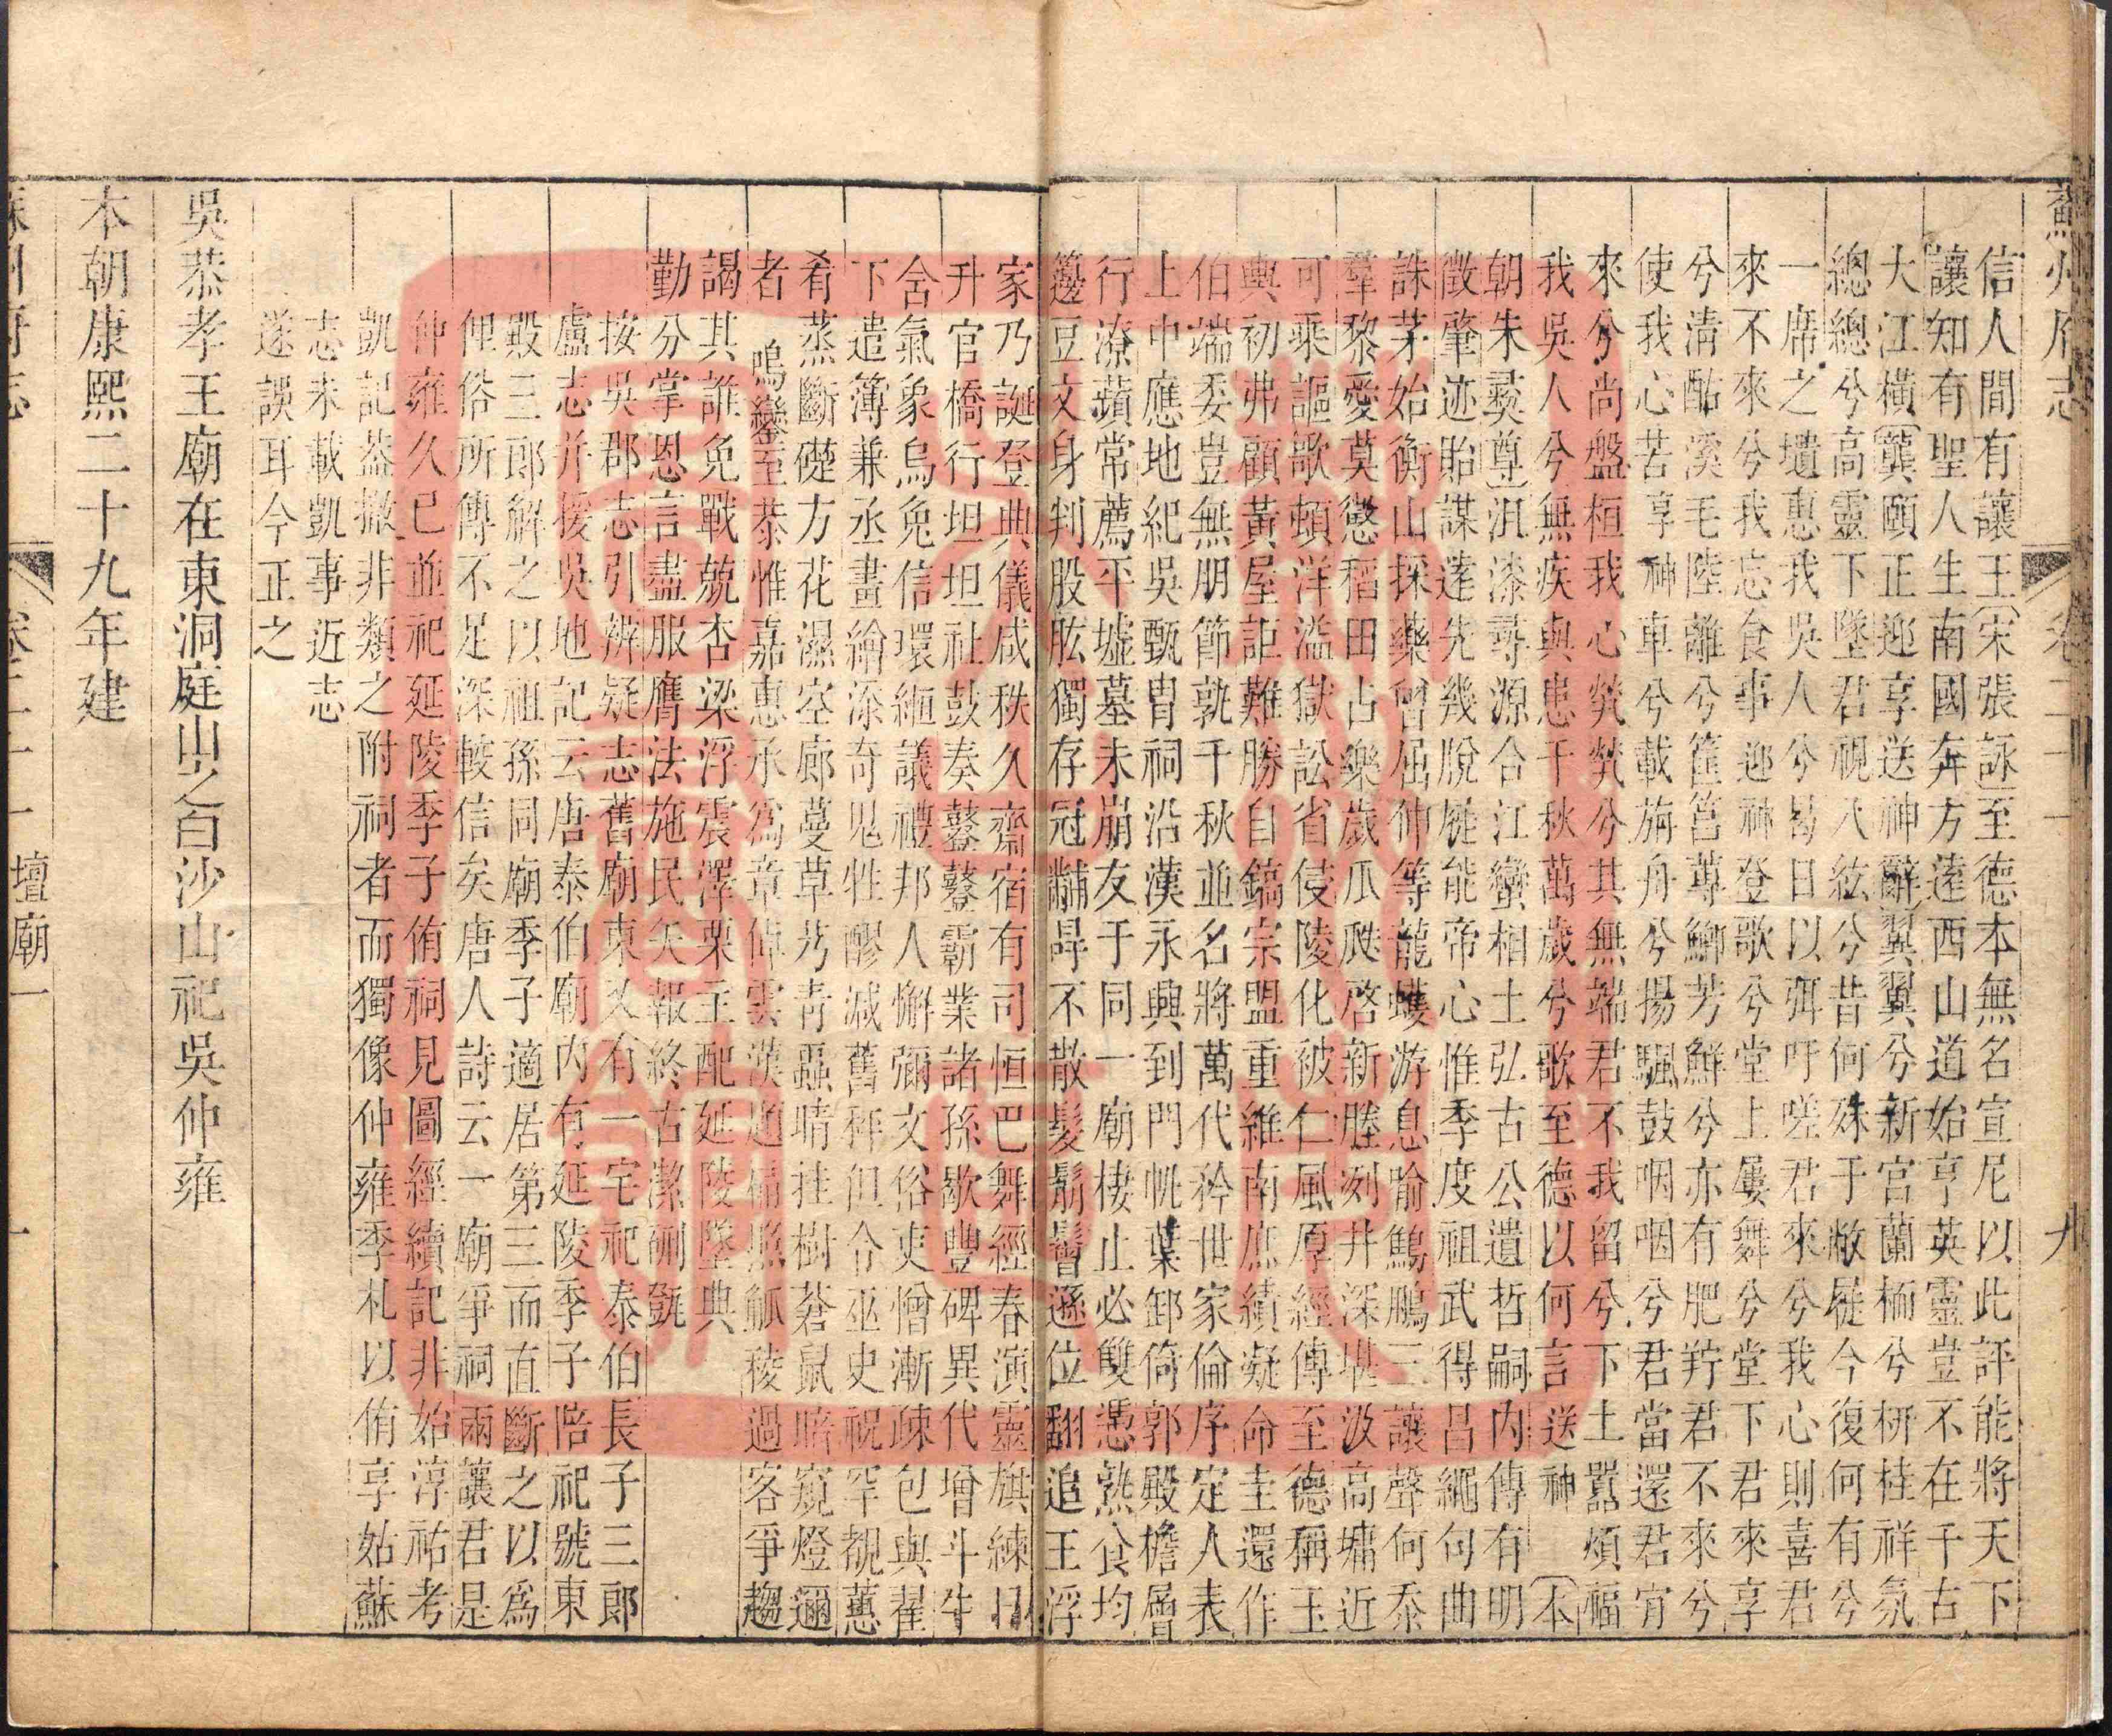 蘇州府志 卷二十一 九
信人間有讓王宋張詠至德本無名宣尼以此評能將天下
讓知有聖人生南國奔方遠西山道始亨英靈豈不在千古
大江橫龔頤正迎享送神辭翼翼兮新宮蘭楣兮枅桂祥氛
總總兮高靈下墜君視八紘兮昔何殊于敝屣今復何有兮
一席之壝惠我吳人兮曷日以弭吁嗟君來兮我心則喜君
來不來兮我忘食事迎神登歌兮堂上屢舞兮堂下君來享
兮清酤溪毛陸離兮筐筥蓴鱮芳鮮兮亦有肥羜君不來兮
使我心苦享神車兮載旃舟兮揚颿鼓咽咽兮君當還君宵
來兮尚盤桓我心煢煢兮其無端君不我留兮下土囂煩福
我吳人兮無疾與患千秋萬歲兮歌至德以何言送神 本
朝朱彝尊沮漆尋源合江蠻相土弘古公遺哲嗣內傳有明
徵肇迹貽謀蓬先幾脫屣能帝心惟季度祖武得昌繩句曲
誅茅始衡山採藥曾屈伸等龍蠖游息喻鷦鵬三讓聲何泰
羣黎愛莫懲稻田占樂歲瓜瓞啓新塍剡井深堪汲高墉近
可乘謳歌頓洋溢獄訟省侵陵化被仁風厚經傳至德稱玉
輿初弗顧黃屋詎難勝自鎬宗盟重維南庶績凝命圭還作
伯端委豈無朋節孰千秋並名將萬代矜世家倫序定人表
上中應地紀吳甄胄祠沿漢永興到門帆葉卸倚郭殿檐層
行潦蘋常薦平墟墓未崩友于同一廟棲止必雙憑熟食均
籩豆文身判股肱獨存冠黼冔不散髮鬅鬙遜位翻追王浮
家乃誕登典儀咸秩久齋宿有司恒巴舞經春演靈旗練日
升官橋行坦坦社鼓奏鼞鼞霸業諸孫歇豐碑異代增斗牛
舍氣象烏兔信環絙議禮邦人懈彌文俗吏憎漸疎包與翟
下遣簿兼丞畫繪添奇鬼牲醪減舊秤但令巫史祝罕覩蕙
肴蒸斷礎方花濕空廊蔓草艿青蝨晴挂樹蒼鼠暗窺燈邇
者鳴鑾至恭惟嘉惠承爲章倬雲漢迥偏照觚稜過客爭趨
謁其誰免戰兢杏梁浮震澤栗主配延陵墜典
勤分掌恩言盡服膺法施民矢報終古潔鉶㽅
按吳郡志引辨疑志舊廟東又有一宅祀泰伯長子三郎
盧志并援吳地記云唐泰伯廟內有延陵季子陪祀號東
殿三郎解之以祖孫同廟季子適居第三而直斷之以爲
俚俗所傳不足深較信矣唐人詩云一廟爭祠兩讓君是
仲雍久已並祀延陵季子侑祠見圖經續記非始淳祐考
凱記葢撤非類之附祠者而獨像仲雍季札以侑享姑蘇
志未載凱事近志
遂誤耳今正之
吳恭孝王廟在東洞庭山之白沙山祀吳仲雍
本朝康熙二十九年建
蘇州府志 卷二十一 壇廟一